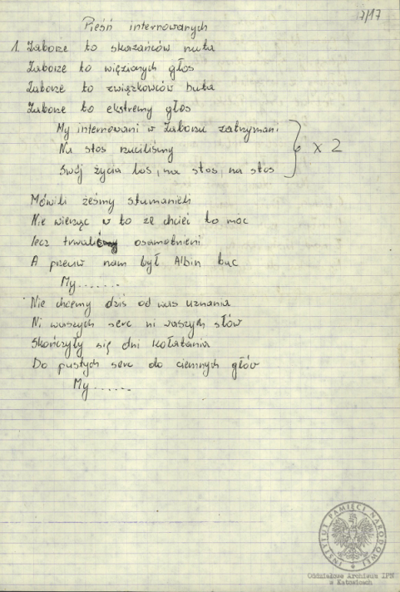 7/17
Pieśń internowanych
1. Zaborze to skazańców nuta
Zaborze to więzionych głos
Zaborze to związkowców buta
Zaborze to ekstremy głos
My internowani w Zaborzu zatrzymani
Na stos rzuciliśmy
Swój życia los, na stos, na stos
x 2
Mówili żeśmy stumanieni
Nie wierząc w to że chcieć to moc
Lecz trwaliśmy osamotnieni
A przeciw nam był Albin buc
My.......
Nie chcemy dziś od was uznania
Ni waszych serc ni waszych słów
Skończyły się dni kołatania
Do pustych serc do ciemnych głów
My.......
INSTYTUT PAMIĘCI NARODOWEJ
Oddziałowe Archiwum IPN
w Katowicach